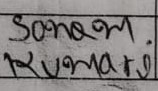 Sonam.
Kumari